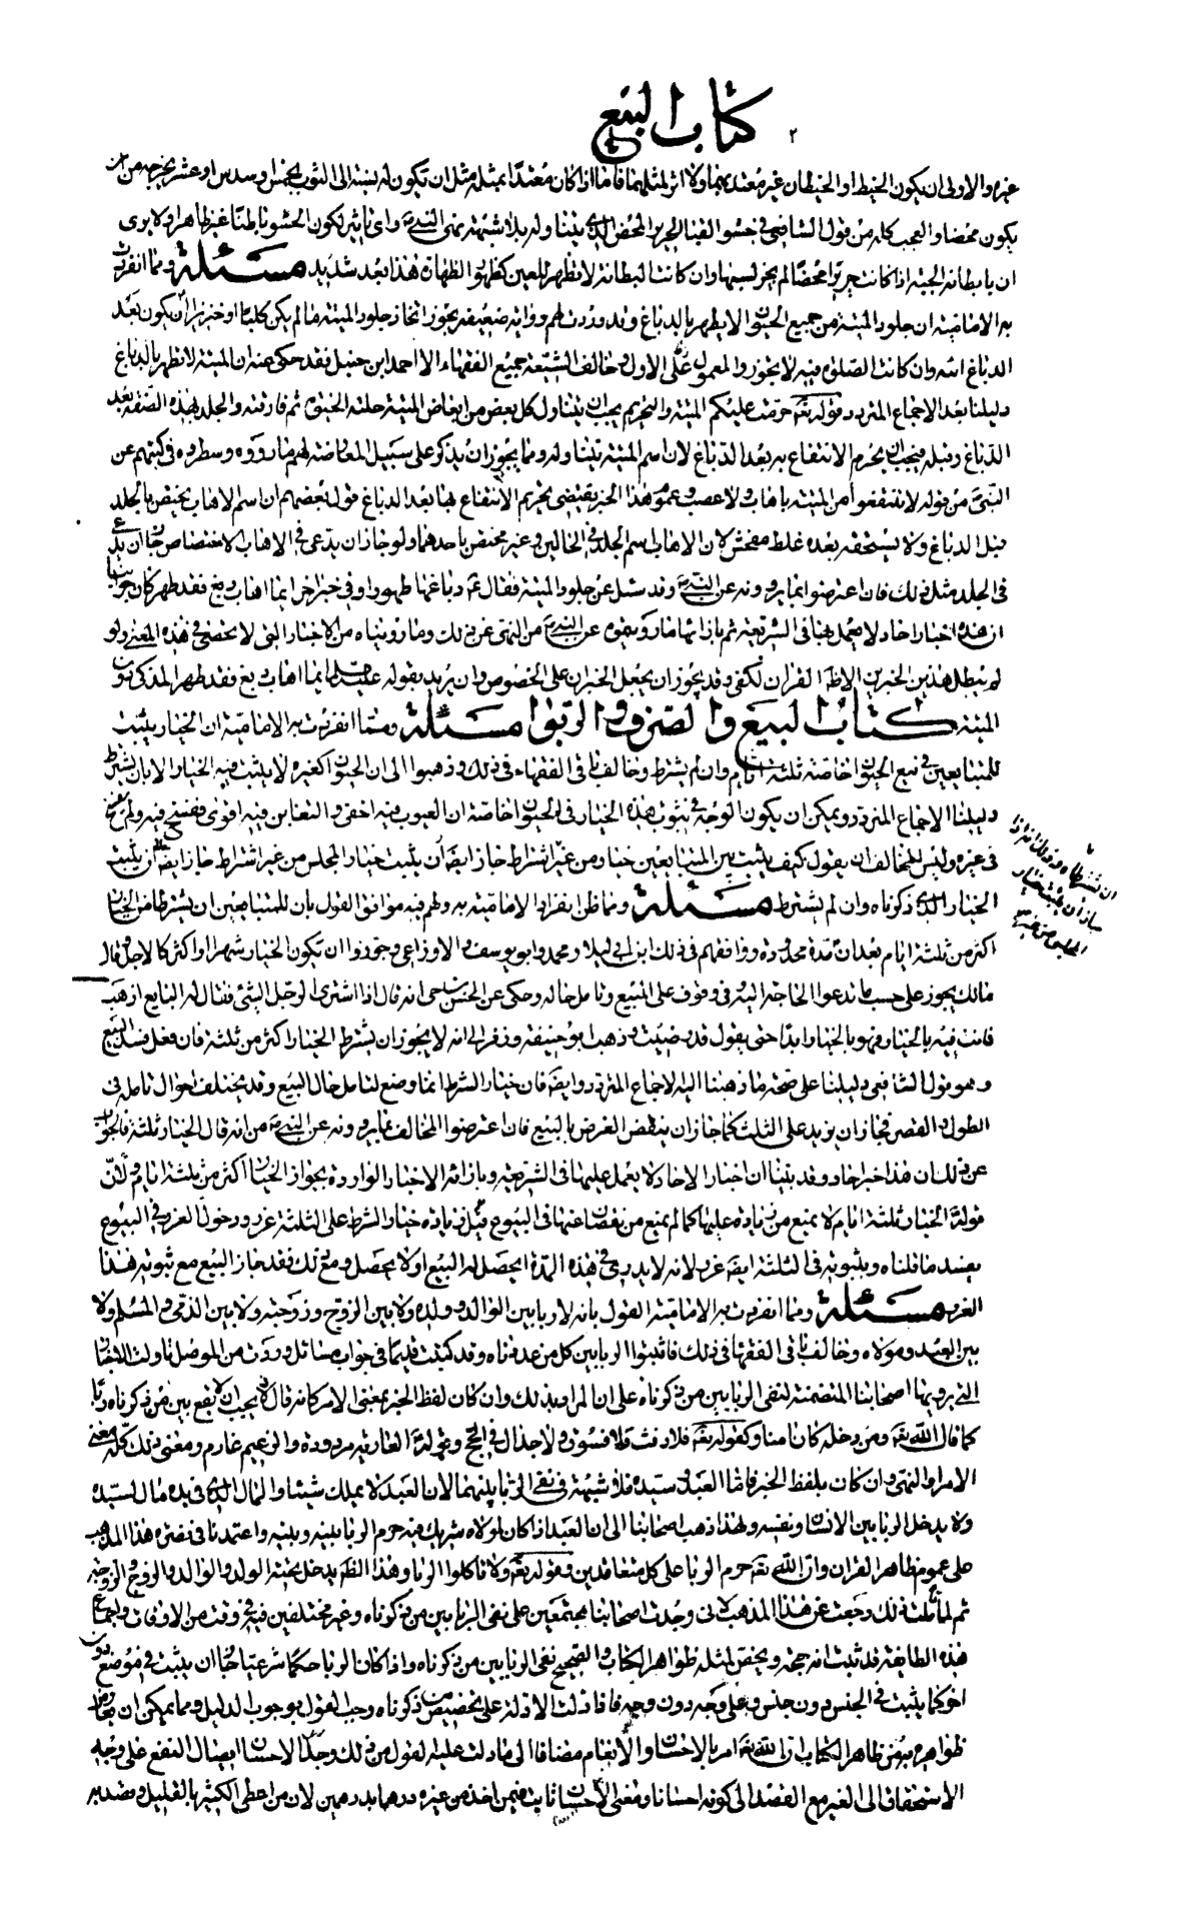 كتاب البيع
٢
غيره والاولى ان يكون الخيط او الخيطان غير معتد بهما ولا اثر لمثلهما فاما اذا كان معتدا بمثله مثل ان تكون له نسبة الى الثوب بخمس او سدس او عشر يخرجه من ان
يكون محضا والعجب كله من قول الشافعي في حشو القباء الحرير المحض الذي يتناوله بلا شبهة نهي النبي ص واي تاثير لكون الحشو باطنا غير ظاهر اولا يرى
ان بابطانة الجبة اذا كانت حريرا محضا لم يجز لبسها وان كانت البطانة لا تظهر للعين كظهور الظهارة هذا بعد شديد مسئلة ومما انفردت
به الامامية ان جلود الميتة من جميع الحيوان لا يطهر بالدباغ وقد وردت لهم رواية ضعيفة بجواز اتخاذ جلود الميتة ما لم يكن كلبا او خنزيرا ان يكون بعد
الدباغ انية وان كانت الصلوة فيه لا يجوز والمعمول على الاول وخالف الشيعة جميع الفقهاء الا احمد ابن حنبل فقد حكي عنه ان الميتة لا تطهر بالدباغ
دليلنا بعد الاجماع المتردد قوله تعه حرمت عليكم الميتة والتحريم يجب ان يتناول كل بعض من ابعاض الميتة حلته الحيوة ثم فارقته والجلد بهذه الصفة بعد
الدباغ وقبله فيجب ان يحرم الانتفاع به بعد الدباغ لان اسم الميتة يتناوله ومما يجوز ان يذكر على سبيل المعارضة لهم ما رووه وسطروه في كتبهم عن
النبي ص من قوله لا تنتفعوا من الميتة باهاب ولا عصب وعموم هذا الخبر يقتضي تحريم الانتفاع بها بعد الدباغ قول بعضهم ان اسم الاهاب يختص بالجلد
قبل الدباغ ولا يستحقه بعده غلط مفحش لان الاهاب اسم الجلد في الحالين وغير مختص باحدهما ولو جاز ان يدعى في الاهاب الاختصاص جاز ان يدعى
في الجلد مثل ذلك فان اعترضوا بما يروونه عن النبي ص وقد سئل عن جلود الميتة فقال ع دباغها طهورا وفي خبر اخر ايما اهاب دبغ فقد طهر كان جوابنا
ان هذه اخبار احاد لا يعمل بها في الشريعة ثم بازائها ما رويتموه عن النبي ص من النهي عن ذلك وما رويناه من الاخبار التي لا تحصى في هذه المعنى ولو
لم يبطل هذين الخبرين الا ظاهر القران لكفى وقد يجوز ان يجعل الخبران على الخصوص وان يريد بقوله عليه السلم ايما اهاب دبغ فقد طهر المذكى دون
الميتة كتاب البيع والصرف والربوا مسئلة ومما انفردت به الامامية ان الخيار يثبت
للمتبايعين في بيع الحيوان خاصة ثلثة ايام وان لم يشترط وخالف باقي الفقهاء في ذلك وذهبوا الى ان الحيوان كغيره لا يثبت فيه الخيار الا بان يشترط
دليلنا الاجماع المتردد ويمكن ان يكون الوجه في ثبوت هذه الخيار في الحيوان خاصة ان العيوب فيه اخفى والتغابن فيه اقوى ففسح فيه ولم يفسح
في غيره وليس للمخالف ان يقول كيف يثبت بين المتبايعين خيار من غير اشتراط جاز ايضا ان يثبت خيار المجلس من غير اشتراط جاز ايضا ان يثبت
الخيار الذي ذكرناه وان لم يشترط مسئلة ومما ظن انفراد الامامية به ولهم فيه موافق القول بان للمتبايعين ان يشترطا من الخيار
اكثر من ثلثة ايام بعد ان مدة محدودة ووافقهم في ذلك ابن ابي ليلا ومحمد وابو يوسف والاوزاعي وجوزوا ان تكون الخيار شهرا واكثر كالاجل وقال
مالك يجوز على حسب ما تدعوا الحاجة اليه في وقوف على المبيع وتامل حاله وحكي عن الحسن بن صالح بن حي انه قال اذا اشترى الرجل الشئ فقال له البايع اذهب
فانت فيه بالخيار فهو بالخيار ابدا حتى يقول قد رضيت وذهب ابو حنيفة وزفر الى انه لا يجوز ان يشترط الخيار اكثر من ثلثة فان فعل فسد البيع
وهو قول الشافعي دليلنا على صحة ما ذهبنا اليه الاجماع المتردد وايضه فان خيار الشرط انما وضع لتامل حال المبيع وقد يختلف احوال تامله في
الطول والقصر فجاز ان يزيد على الثلث كما جاز ان ينقص الغرض بالمبيع فان اعترضوا المخالف بما يروونه عن النبي ص من انه قال الخيار ثلثة فالجواب
عن ذلك ان هذا خبر احاد وقد بينا ان اخبار الاحاد لا يعمل عليها في الشريعة وبازائه الاخبار الواردة بجواز الخيار اكثر من ثلثة ايام ولان
قوله الخيار ثلثة ايام لا يمنع من زيادة عليها كما لم يمنع من نقصان عنها في البيوع قيل زيادة خيار الشرط على الثلثة غرر ودخول الغرر في البيوع
يفسد ما قلناه وبثبوته في الثلثة ايضه غرر لانه لا يدري في هذه المدة ايحصل له البيع او لا يحصل ومع ذلك فقد جاز البيع مع ثبوته هذا
الغرر مسئلة ومما انفردت به الامامية القول بانه لا ربا بين الوالد وولده ولا بين الزوج وزوجته ولا بين الذمي والمسلم ولا
بين العبد ومولاه وخالف باقي الفقها في ذلك فاثبتوا الربا بين كل من عددناه وقد كتبت قديما في جواب مسائل وردت من الموصل تاولت الاخبار
التي يرويها اصحابنا المتضمنة لنفي الربا بين من ذكرناه على ان المراد بذلك وان كان لفظ الخبر بمعنى الامر كانه قال يجب ان لا يقع بين من ذكرناه ربا
كما قال الله تعه ومن دخله كان امنا وكقوله تعه فلا رفث ولا فسوق ولا جدال في الحج وقوله ع العارية مردودة والزعيم غارم ومعنى ذلك كله معنى
الامر والنهي وان كان بلفظ الخبر فاما العبد وسيده فلا شبهة في نفي الربا بينهما لان العبد لا يملك شيئا والمال الذي في يده مال لسيده
ولا يدخل الربا بين الانسان ونفسه ولهذا ذهب اصحابنا الى ان العبد اذا كان لمولاه شريك فيه حرم الربا بينه وبينه واعتمدنا في نصرة هذا المذهب
على عموم ظاهر القران وان الله تعه حرم الربا على كل متعاقدين وقوله تعه ولا تاكلوا الربا وهذا الظاهر يدخل تحته الولد والوالد والزوج والزوجة
ثم لما تاملت ذلك رجعت عن هذا المذهب لاني وجدت اصحابنا مجتمعين على نفي الربا بين من ذكرناه وغير مختلفين فيه في وقت من الاوقات واجماع
هذه الطايفة قد ثبت انه حجة ويخص بمثله ظواهر الكتاب والصحيح نفي الربا بين من ذكرناه واذا كان الربا حكما شرعيا جاز ان يثبت في موضع دون
اخر كما يثبت في الجنس دون جنس وعلى وجه دون وجه فاذا دلت الادلة على تخصيص من ذكرناه وجب القول بموجب الدليل ومما يمكن ان يعارض
ظواهره من ظاهر الكتاب ان الله تعه امر بالاحسان والانعام مضافا الى ما دلت عليه العقول من ذلك وحد الاحسان ايصال النفع على وجه
الاستحقاق الى الغير مع القصد الى كونه احسانا ومعنى الاحسان ثابت فيمن اخذ من غيره درهما بدرهمين لان من اعطى الكثير بالقليل وقصد به